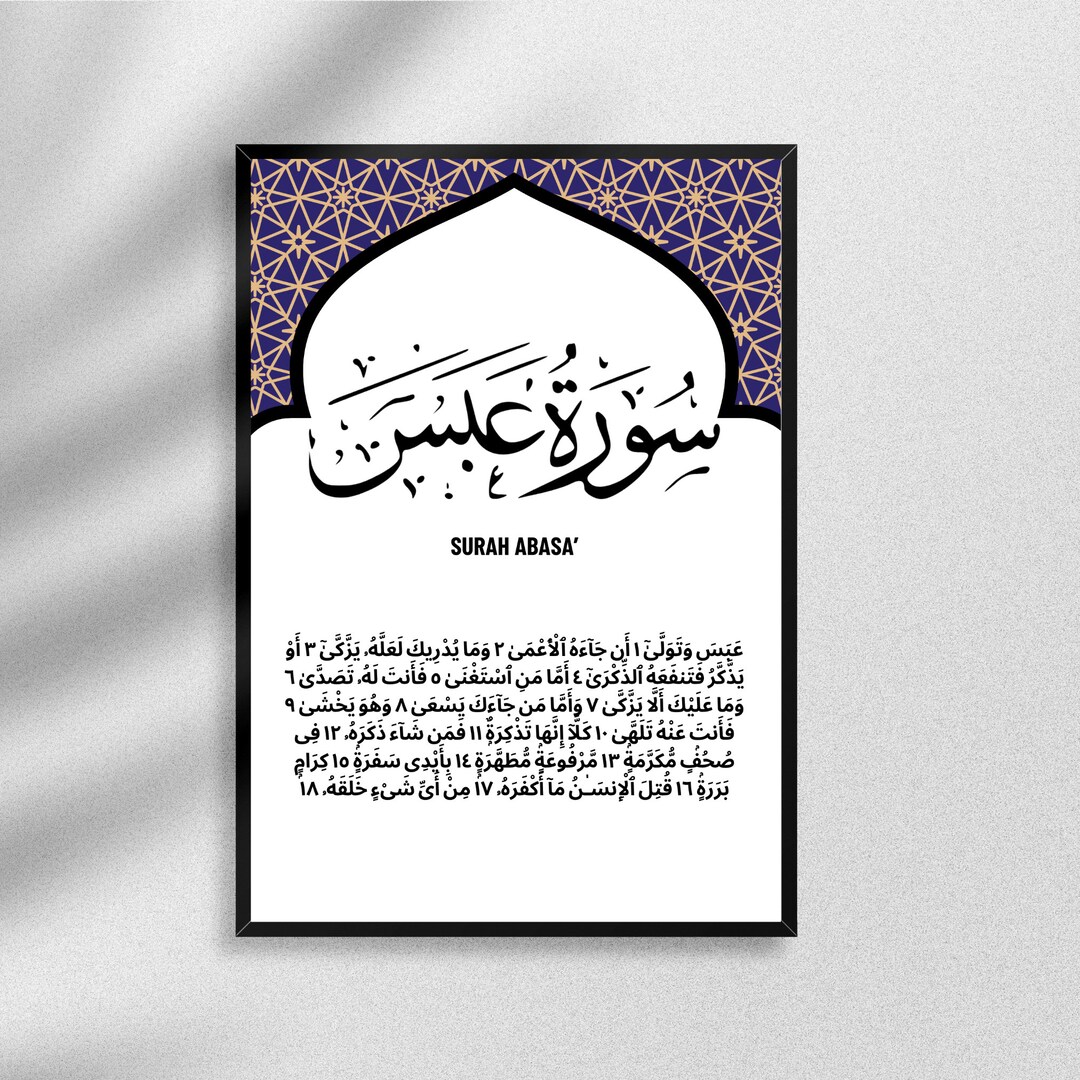 سُورَةُ عَبَسَ
SURAH ABASA’
عَبَسَ وَتَوَلَّىٰٓ ١ أَن جَآءَهُ ٱلْأَعْمَىٰ ٢ وَمَا يُدْرِيكَ لَعَلَّهُۥ يَزَّكَّىٰٓ ٣ أَوْ
يَذَّكَّرُ فَتَنفَعَهُ ٱلذِّكْرَىٰٓ ٤ أَمَّا مَنِ ٱسْتَغْنَىٰ ٥ فَأَنتَ لَهُۥ تَصَدَّىٰ ٦
وَمَا عَلَيْكَ أَلَّا يَزَّكَّىٰ ٧ وَأَمَّا مَن جَآءَكَ يَسْعَىٰ ٨ وَهُوَ يَخْشَىٰ ٩
فَأَنتَ عَنْهُ تَلَهَّىٰ ١٠ كَلَّآ إِنَّهَا تَذْكِرَةٌ ١١ فَمَن شَآءَ ذَكَرَهُۥ ١٢ فِى
صُحُفٍ مُّكَرَّمَةٍ ١٣ مَّرْفُوعَةٍ مُّطَهَّرَةٍۭ ١٤ بِأَيْدِى سَفَرَةٍ ١٥ كِرَامٍۭ
بَرَرَةٍ ١٦ قُتِلَ ٱلْإِنسَـٰنُ مَآ أَكْفَرَهُۥ ١٧ مِنْ أَىِّ شَىْءٍ خَلَقَهُۥ ١٨